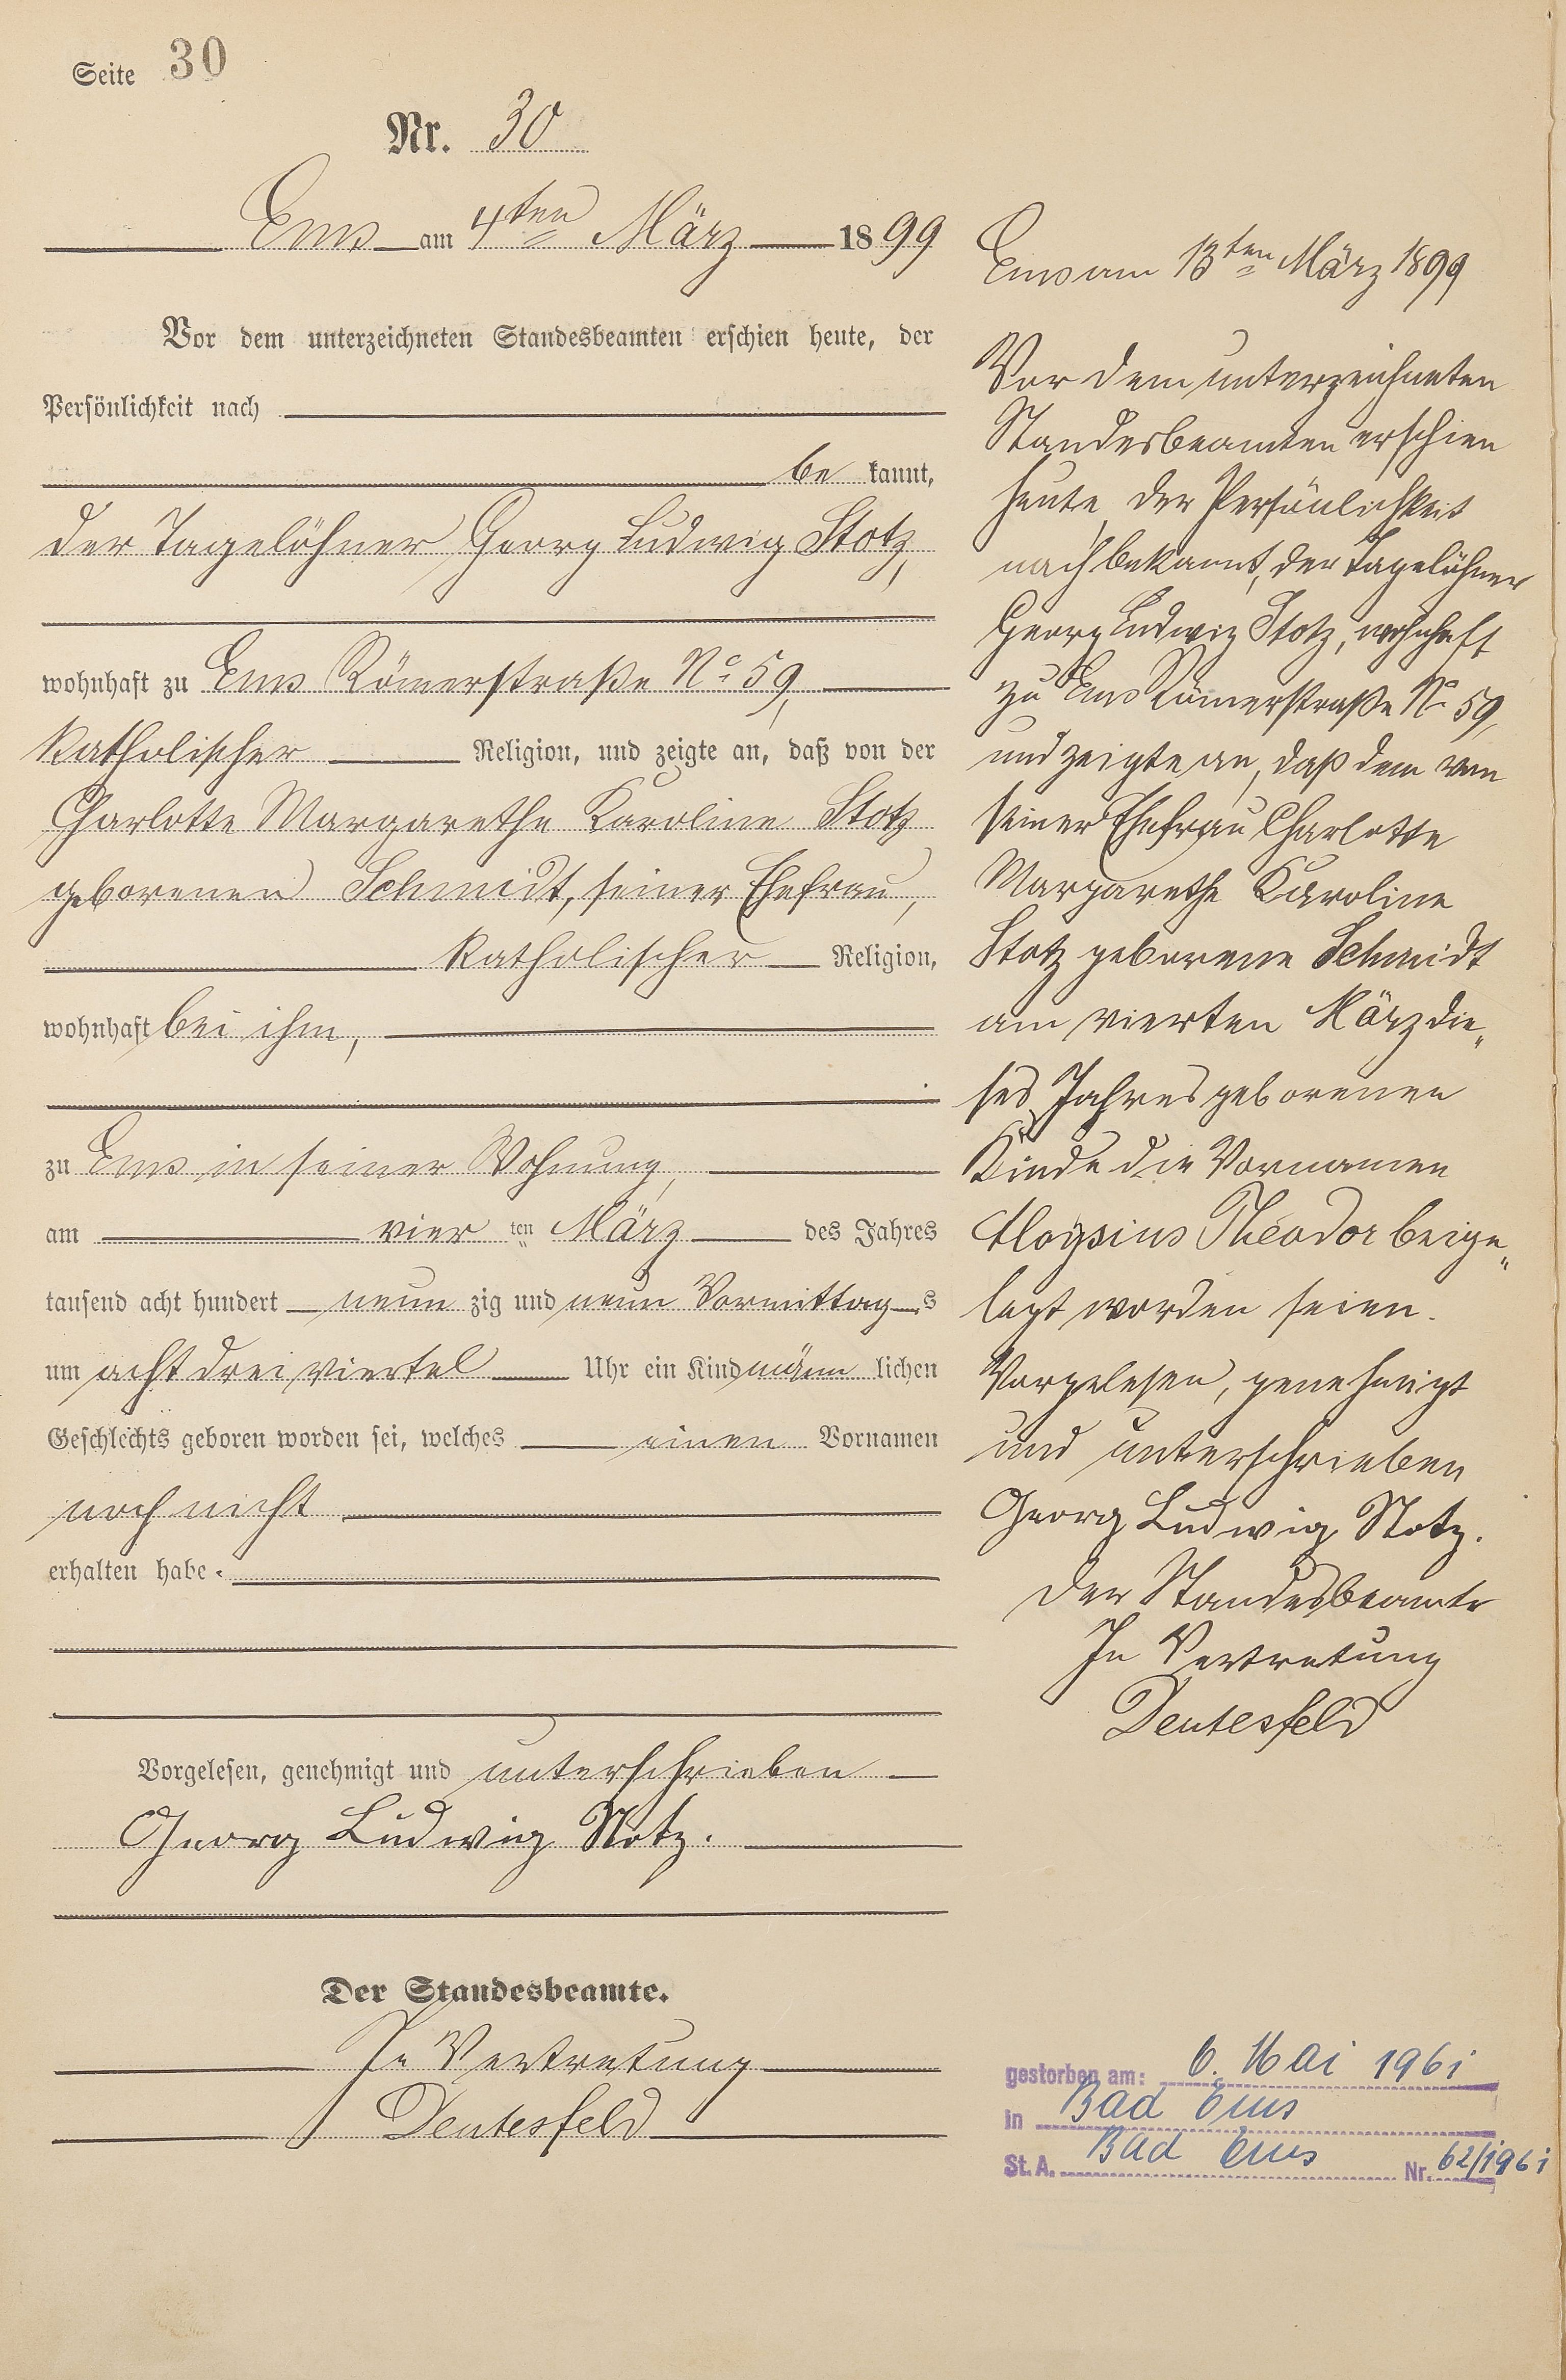 Seite 30
Nr. 30
Ems am 4ten März 1899
Vor dem unterzeichneten Standesbeamten erschien heute, der
Persönlichkeit nach
be kannt,
der Tagelöhner Georg Ludwig Stotz,
wohnhaft zu Ems Römerstraße No 59,
katholischer Religion, und zeigte an, daß von der
Charlotte Margarethe Karoline Stotz
geborenen Schmidt, seiner Ehefrau,
katholischer Religion,
wohnhaft bei ihm,
zu Ems in seiner Wohnung,
am vier ten März des Jahres
tausend acht hundert neun zig und neun Vormittag s
um acht dreiviertel Uhr ein Kind männ lichen
Geschlechts geboren worden sei, welches einen Vornamen
noch nicht
erhalten habe.
Vorgelesen, genehmigt und unterschrieben
Georg Ludwig Stotz.
Der Standesbeamte.
In Vertretung
Deutesfeld
Ems am 13ten März 1899
Vor dem unterzeichneten
Standesbeamten erschien
heute, der Persönlichkeit
nach bekannt, der Tagelöhner
Georg Ludwig Stotz, wohnhaft
zu Ems Römerstraße No 59,
und zeigte an, daß dem von
seiner Ehefrau Charlotte
Margarethe Karoline
Stotz geborene Schmidt
am vierten März die„
ses Jahres geborenen
Kinde die Vornamen
Aloysius Theodor beige„
legt worden seien.
Vorgelesen, genehmigt
und unterschrieben
Georg Ludwig Stotz.
Der Standesbeamte
In Vertretung
Deutesfeld
gestorben am: 6. Mai 1961
in Bad Ems
St. A. Bad Ems Nr. 62/1961